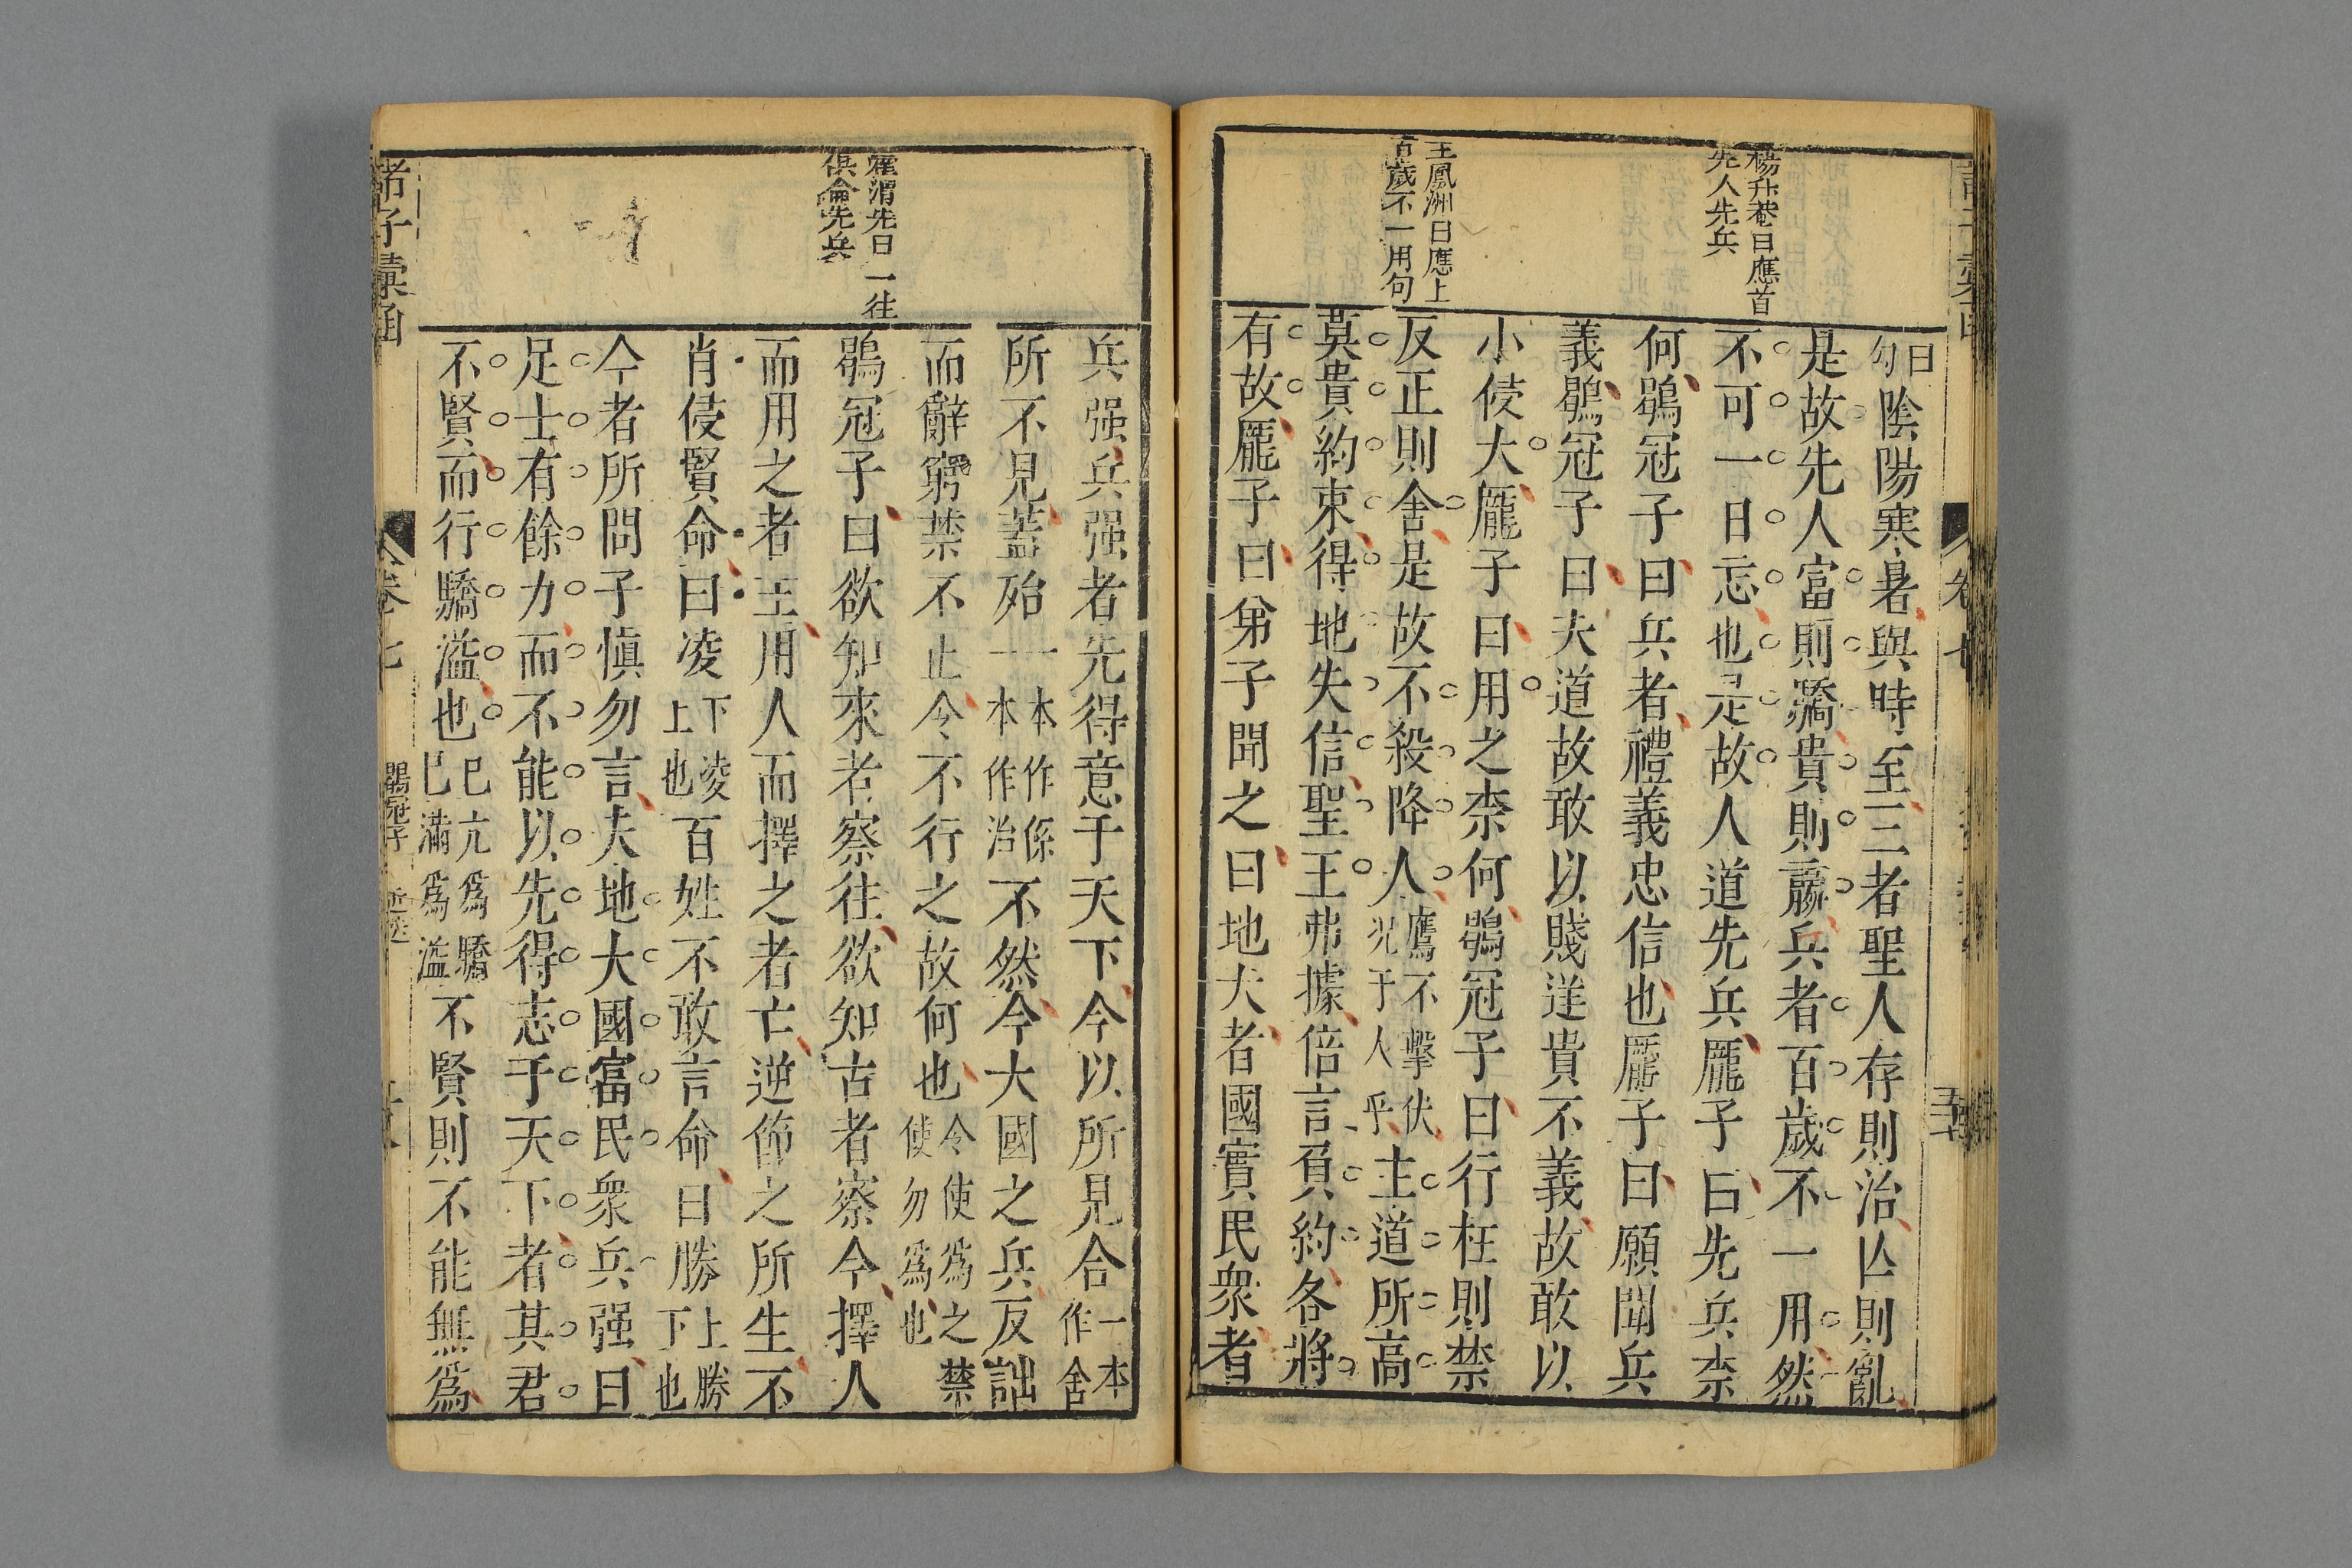 楊升菴曰應首
先人先兵
王鳳洲曰應上
百歲不一用句
曰勾陰陽寒暑與時至三者聖人存則治亾則亂
是故先人富則驕貴則羸兵者百歲不一用然
不可一日忘也是故人道先兵龐子曰先兵柰
何鶡冠子曰兵者禮義忠信也龐子曰願聞兵
義鶡冠子曰夫道故敢以賤逆貴不義故敢以
小侵大龐子曰用之柰何鶡冠子曰行枉則禁
反正則舍是故不殺降人鷹不擊伏况于人乎主道所高
莫貴約束得地失信聖王弗據倍言負約各將
有故龐子曰弟子聞之曰地大者國實民衆者
霍渭先曰一往
俱侖先兵
兵强兵强者先得意于天下今以所見合一本作舍
所不見蓋殆一本作係一本作治不然今大國之兵反詘
而辭窮禁不止令不行之故何也令使爲之禁使勿爲也
鶡冠子曰欲知來者察往欲知古者察今擇人
而用之者王用人而擇之者亡逆節之所生不
肖侵賢命曰凌下凌上也百姓不敢言命曰勝上勝下也
今者所問子慎勿言夫地大國富民衆兵强曰
足士有餘力而不能以先得志于天下者其君
不賢而行驕溢也已亢爲驕已滿爲溢不賢則不能無爲
諸子彙函
卷七
鶡冠子
近迭